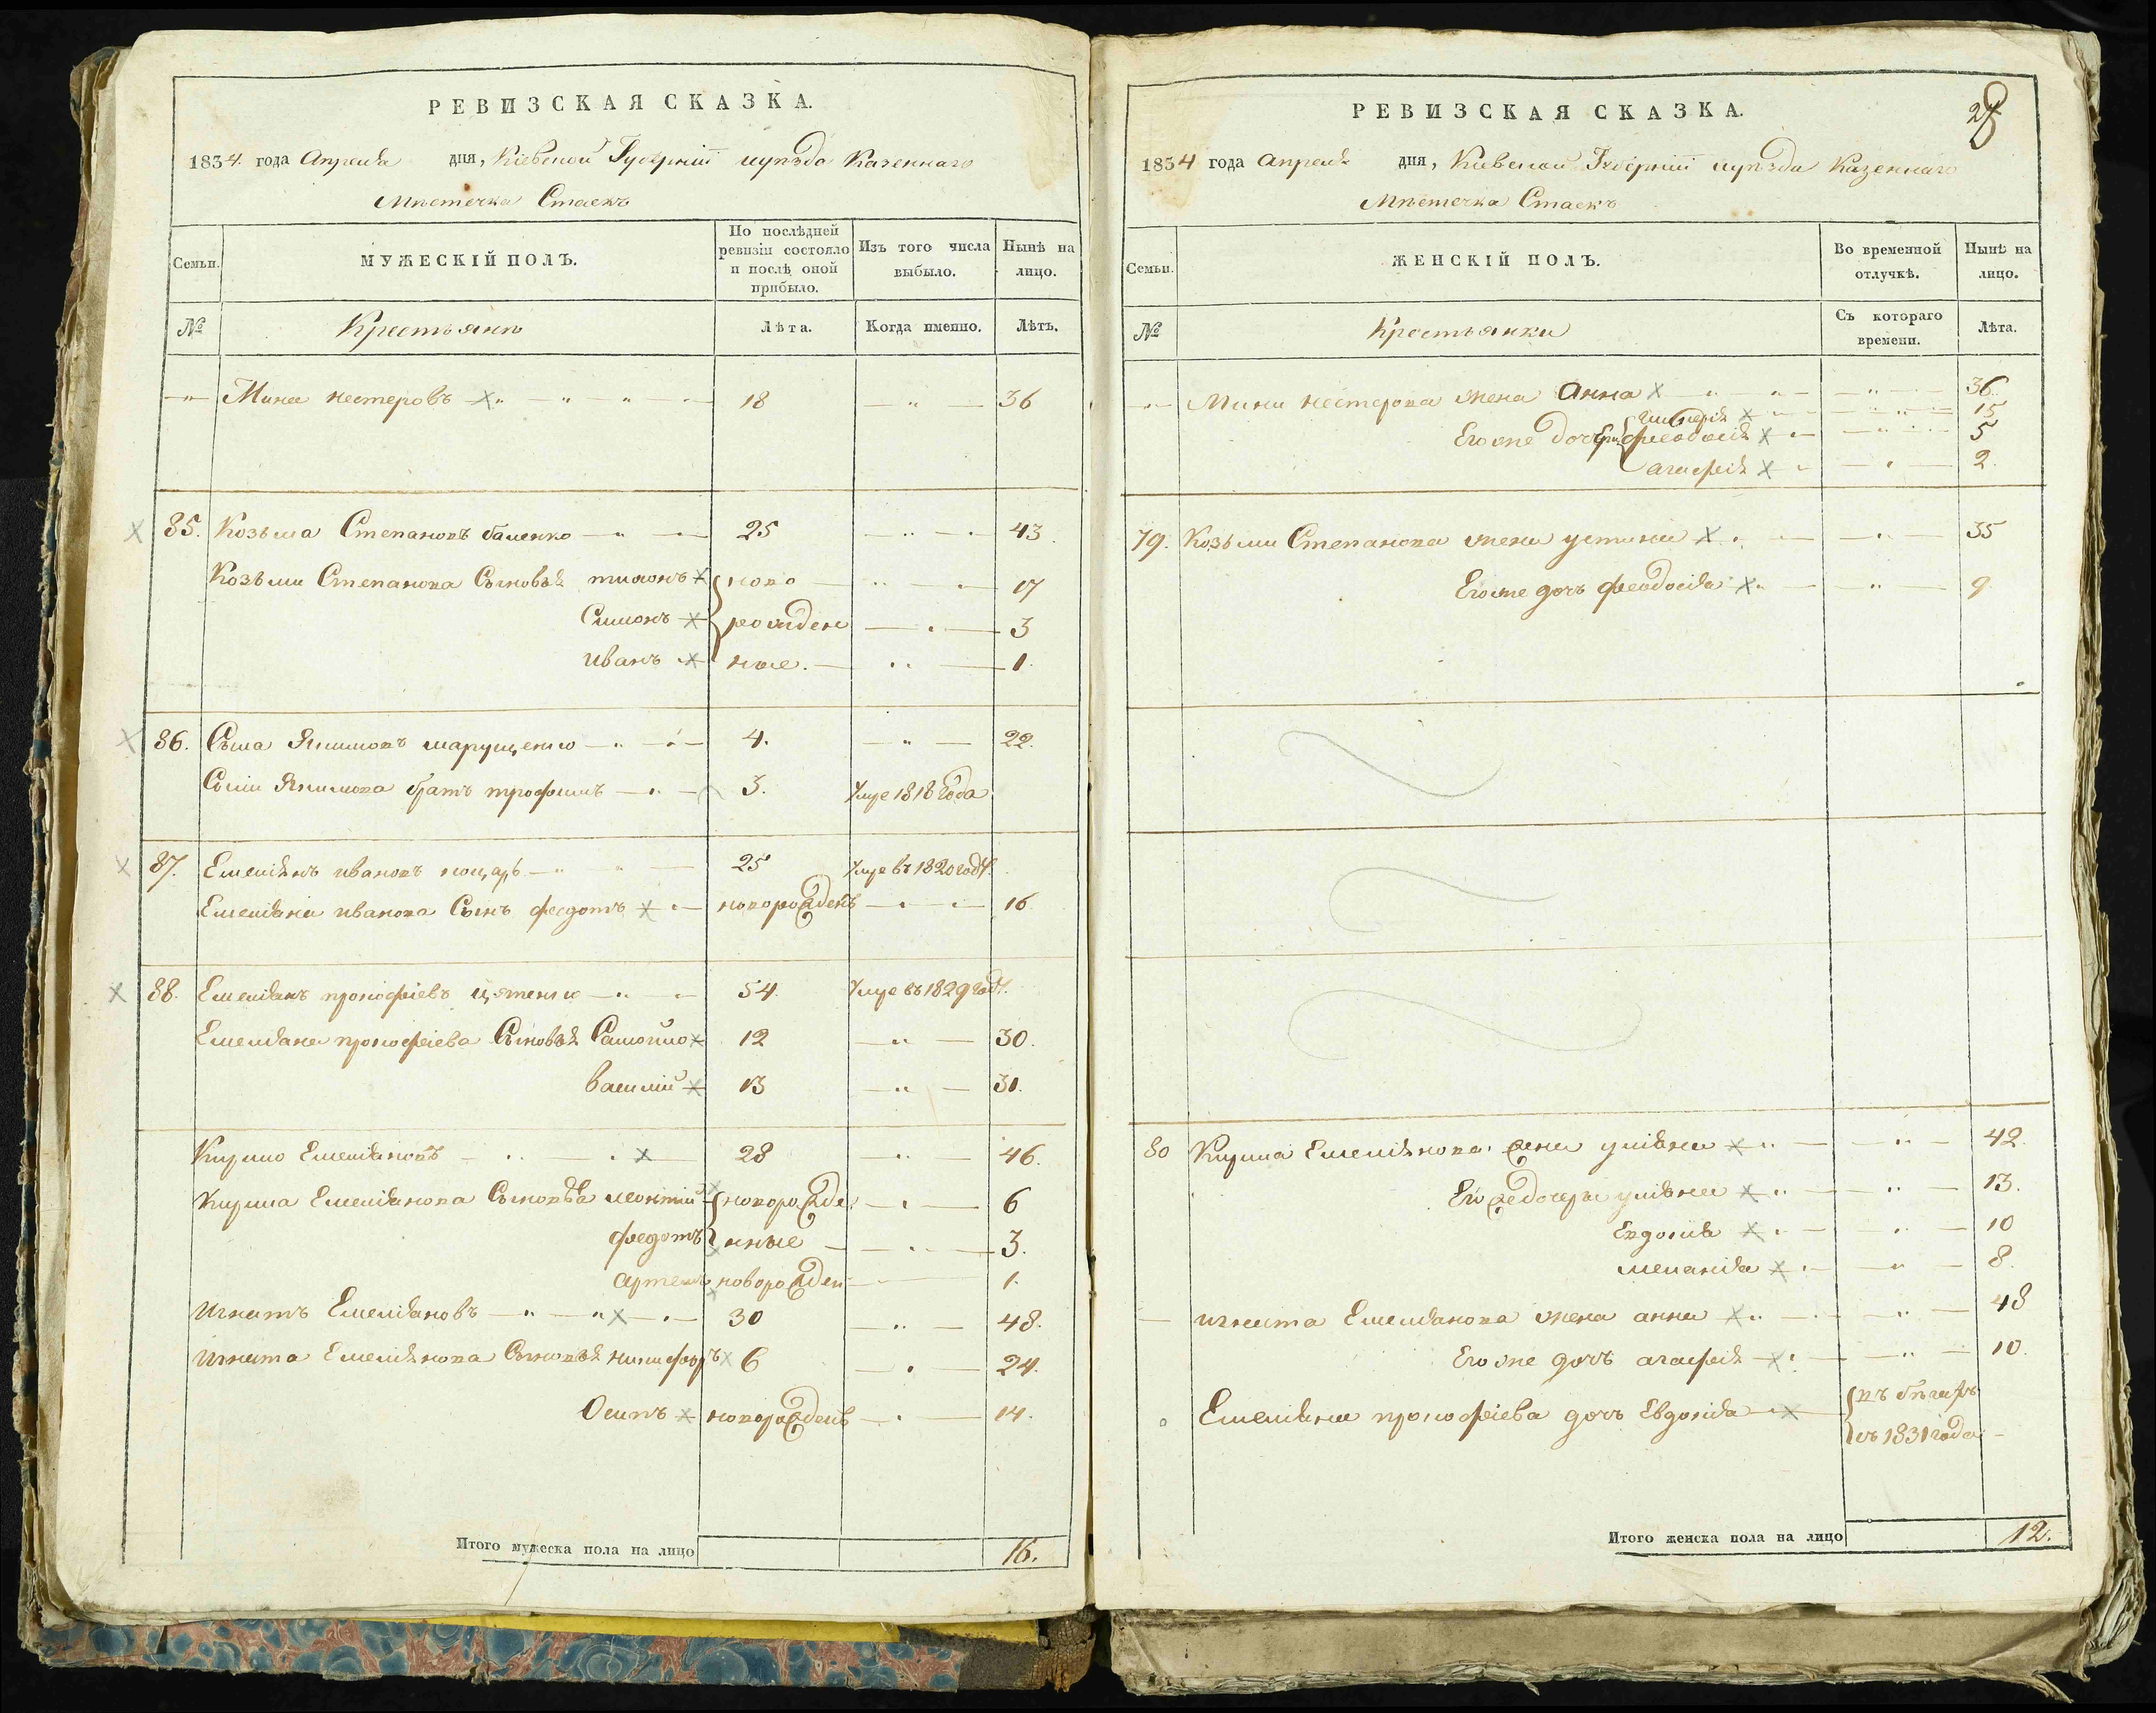 РЕВИЗСКАЯ СКАЗКА.
1834 года Апреля дня, Кіевской Губерніи и уѣзда Казеннаго
Мѣстечка Стаекъ
Семьи. МУЖЕСКІЙ ПОЛЪ. По послѣдней ревизіи состояло и послѣ оной прибыло. Изъ того числа выбыло. Нынѣ на лицо.
№ Крестьяне Лѣта. Когда именно. Лѣтъ.
Мина нестеровъ 18 36
85. Козьма Степановъ 25 43.
Козьми Степанова Сыновья тихонъ ново 17
Симонъ рожден 3
иванъ ные. 1.
86. Сыма Якимовъ марущенко 4. 22.
Сыми Якимова братъ трофимъ 3. Умре 1818 Года
87. Емеліянъ ивановъ 25 Умре въ 1820 годѣ.
Емеліяна иванова Сынъ федотъ новорожденъ 16
88. Емеліянъ прокофіевъ 54. Умре въ 1829 годѣ.
Емеліяна прокофіева Сыновья Самойло 12 30.
василій 13 31.
Кирило Емеліяновъ 28 46.
Кирила Емеліянова Сыновья леонтій новорожде 6
федотъ нные 3.
артемъ новорожден 1.
игнатъ Емеліяновъ 30 48.
игната Емеліянова Сыновья никифоръ 6 24.
Осипъ новорожденъ 14.
Итого мужеска пола на лицо 16.
РЕВИЗСКАЯ СКАЗКА.
1834 года Апреля дня, Киевской Губерніи и уѣзда Казеннаго
Мѣстечка Стаекъ
Семьи. ЖЕНСКІЙ ПОЛЪ. Во временной отлучкѣ. Нынѣ на лицо.
№ Крестьянки Съ котораго времени. Лѣта.
Мини нестерова жена Анна 36.
15
Его же дочери феодосія 5
агафія 2.
79. Козьми Степанова жена устина 35
Его же дочь феодосія 9.
80 Кирила Емеліянова жена уліяна 42.
Его же дочери уліяна 13.
Евдокія 10
меланія 8.
игната Емеліянова жена анна 48
Его же дочь агафія 10.
Емеліяна прокофіева дочь Евдокія въ бѣгахъ
съ 1831 года
Итого женска пола на лицо 12.